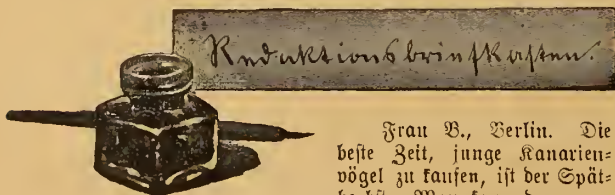 Redaktionsbriefkasten.
Frau B., Berlin. Die
beste Zeit, junge Kanarien-
vögel zu kaufen, ist der Spät-